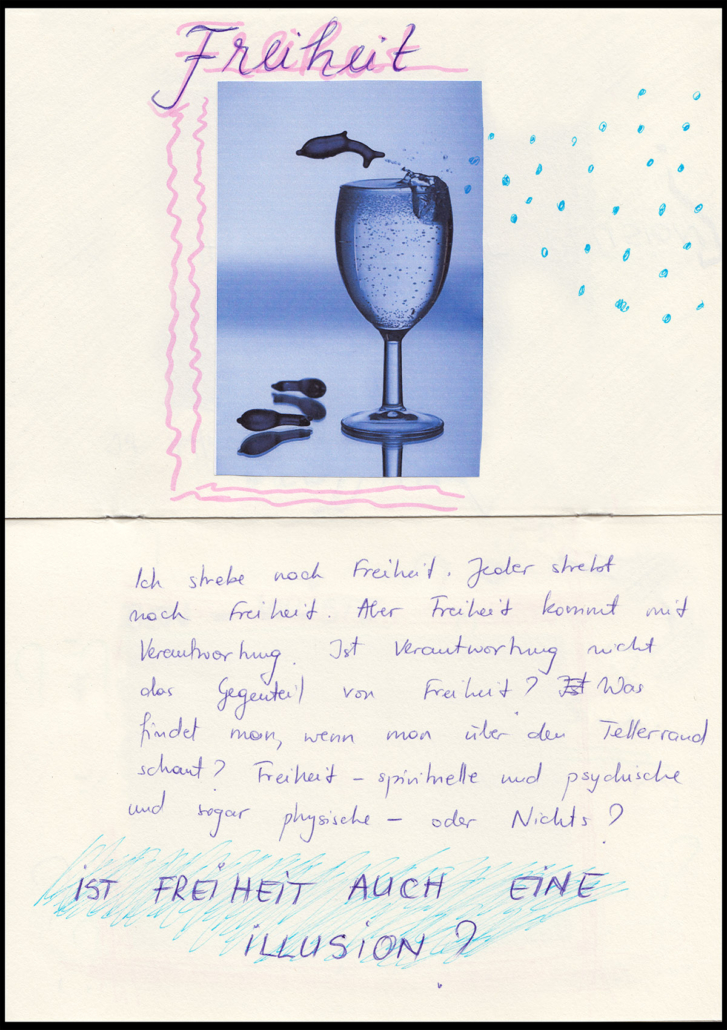 Freiheit
Ich strebe nach Freiheit. Jeder strebt
nach Freiheit. Aber Freiheit kommt mit
Verantwortung. Ist Verantwortung nicht
das Gegenteil von Freiheit? Ist Was
findet man, wenn man über den Tellerrand
schaut? Freiheit – spirituelle und psychische
und sogar physische – oder Nichts?
IST FREIHEIT AUCH EINE
ILLUSION?